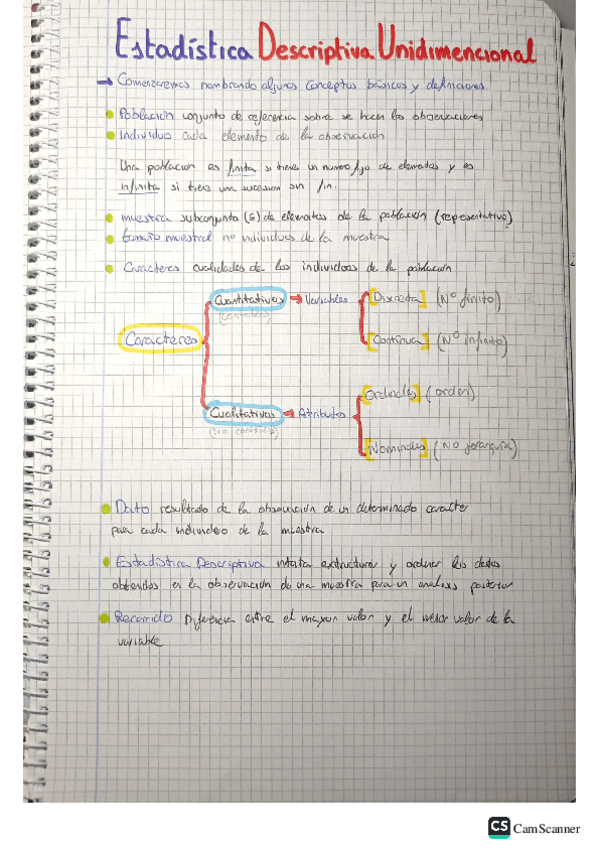 Estadística Descriptiva Unidimencional
→ Comenzaremos nombrando algunos conceptos básicos y definiciones.
Población conjunto de referencia sobre se hacen las observaciones
Individuo cada elemento de la observación
Una población es finita si tiene un numero fijo de elementos y es
infinita si tiene una sucesion sin fin.
muestra subconjunto de elementos de la población (representativo)
tamaño muestral nº individuos de la muestra
Caracteres cualidades de los individuos de la población
Cuantitativos → Variables
Discreta (Nº finito)
(contables)
Caracteres
Continua (Nº infinito)
Cualitativos → Atributos
Ordinales (orden)
Nominales (NO jerarquía)
Dato resultado de la observación de un determinado caracter
para cada individuo de la muestra
Estadística Descriptiva intenta estructurar y ordenar los datos
obtenidos en la observación de una muestra para un analisis posterior
Recorrido Diferencia entre el mayor valor y el menor valor de la
variable
CS CamScanner